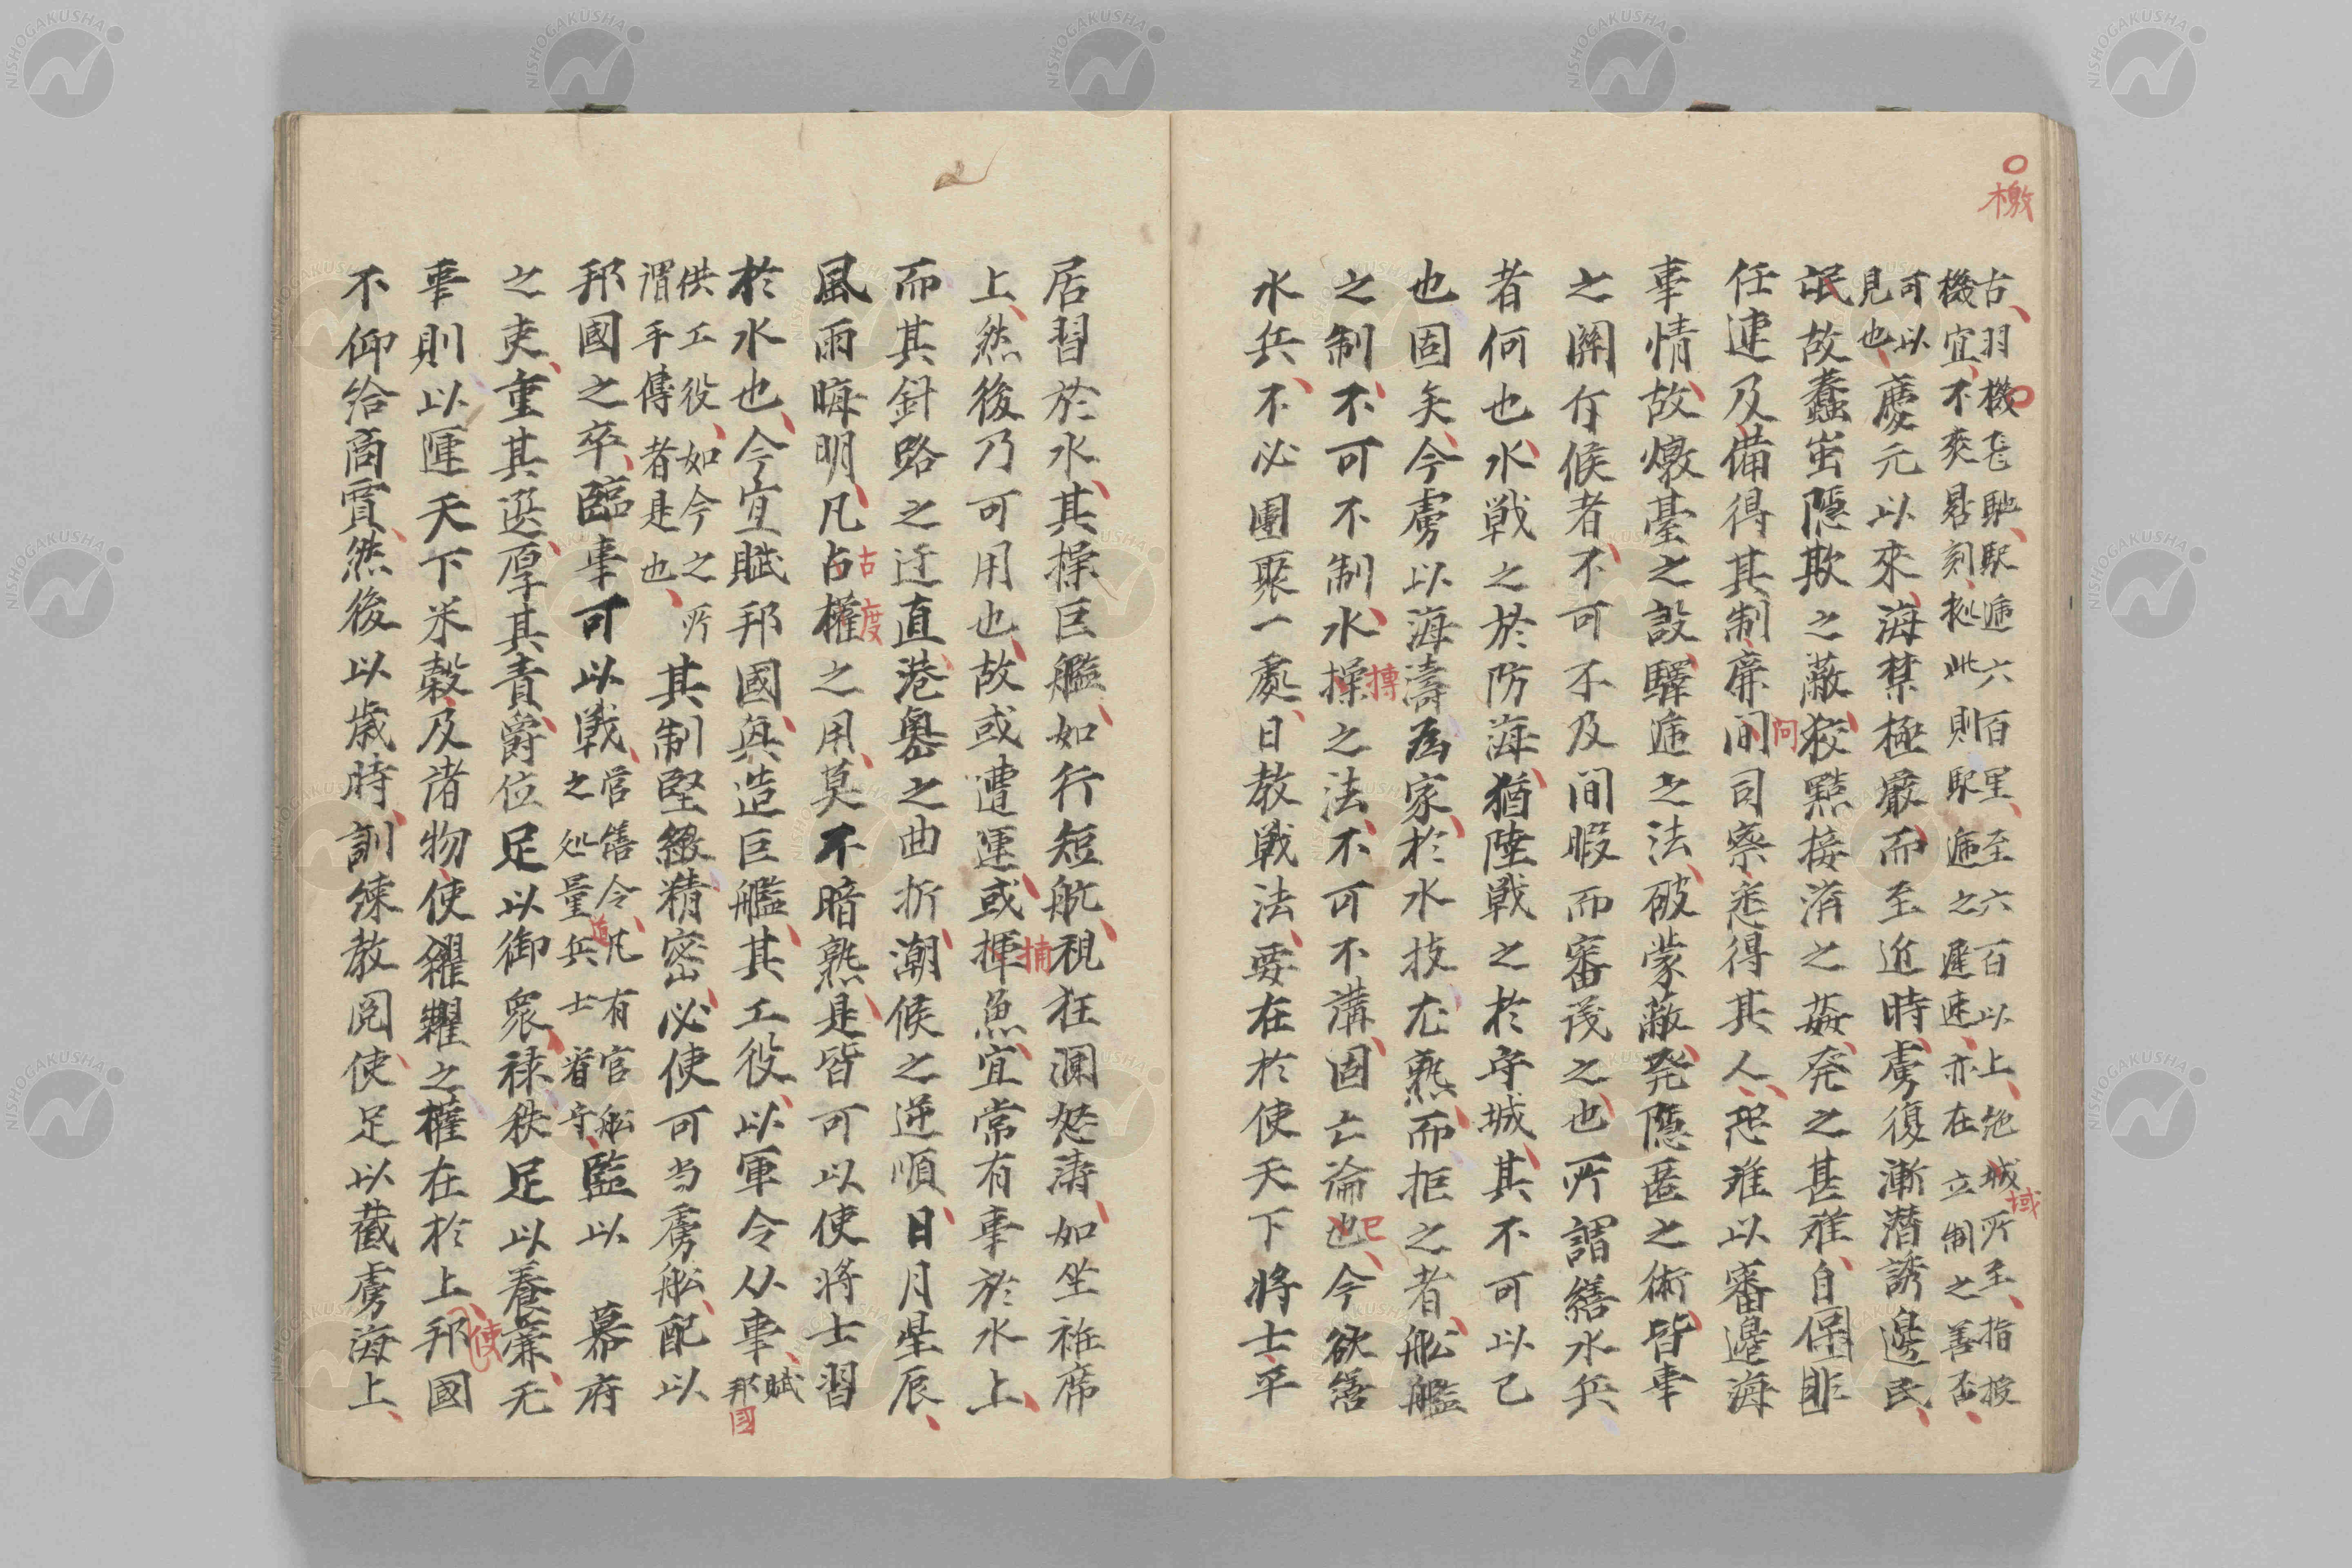 檄
古羽機壱馳駅逓六百里至六百以上絶城所至指授
域
機宜不爽晷刻拠此則駅逓之遅速亦在立制之善否
可以
見也慶元以來海禁極嚴而至近時虜復漸潜誘邊民
氓故蠢蚩隠欺之蔽狡黠接済之姦発之甚难自保非
任逮及備得其制廉间司察悉得其人恐难以審邊海
问
事情故燉臺之設驛逓之法破蒙蔽発隠匿之術皆車
之闗行候者不可不及间暇而審議之也所謂繕水兵
者何也水戦之於防海猶陸戦之於守城其不可以已
也固矣今虜以海濤為家於水技尤熟而拒之者舩艦
之制不可不制水操之法不可不講固亡論也今欲繕
摶
已
水兵不必團聚一處日教戦法要在於使天下将士卒
居習於水其操巨艦如行短航視狂瀾怒涛如坐袵席
上然後乃可用也故或遭運或揮魚宜常有事於水上
捕
而其針路之迂直港奥之曲折潮候之逆順日月星辰
風雨晦明凡占權之用莫不暗熟是皆可以使将士習
古
度
於水也今宜賦邦國與造巨艦其工役以軍令从事賦
邦
國
供工役如今之所
謂手傳者是也
其制堅緻精密必使可当虜舩配以
邦國之卒臨事可以戦官繕令凡有官舩
之処量兵士着守
追
監以 幕府
之吏重其選厚其責爵位足以御衆禄秩足以養廉无
事則以運天下米穀及諸物使糴糶之權在於上邦國
使
不仰给商賈然後以歳時訓練教閲使足以截虜海上
NISHOGAKUSHA